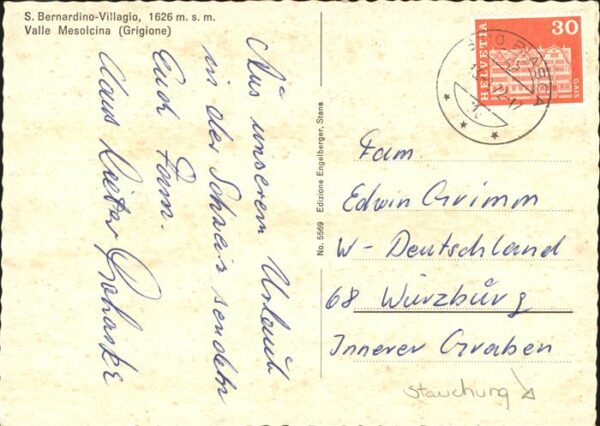 S. Bernardino-Villagio, 1626 m. s. m.
Valle Mesolcina (Grigione)
Aus unserem Urlaub
in der Schweiz senden
Euch Fam.
Claus Dieter
No. 5569 Edizione Engelberger, Stans
HELVETIA
30
GAIS
BIASCA
Fam.
Edwin Grimm
W - Deutschland
68 Würzburg
Innerer Graben
Stauchung